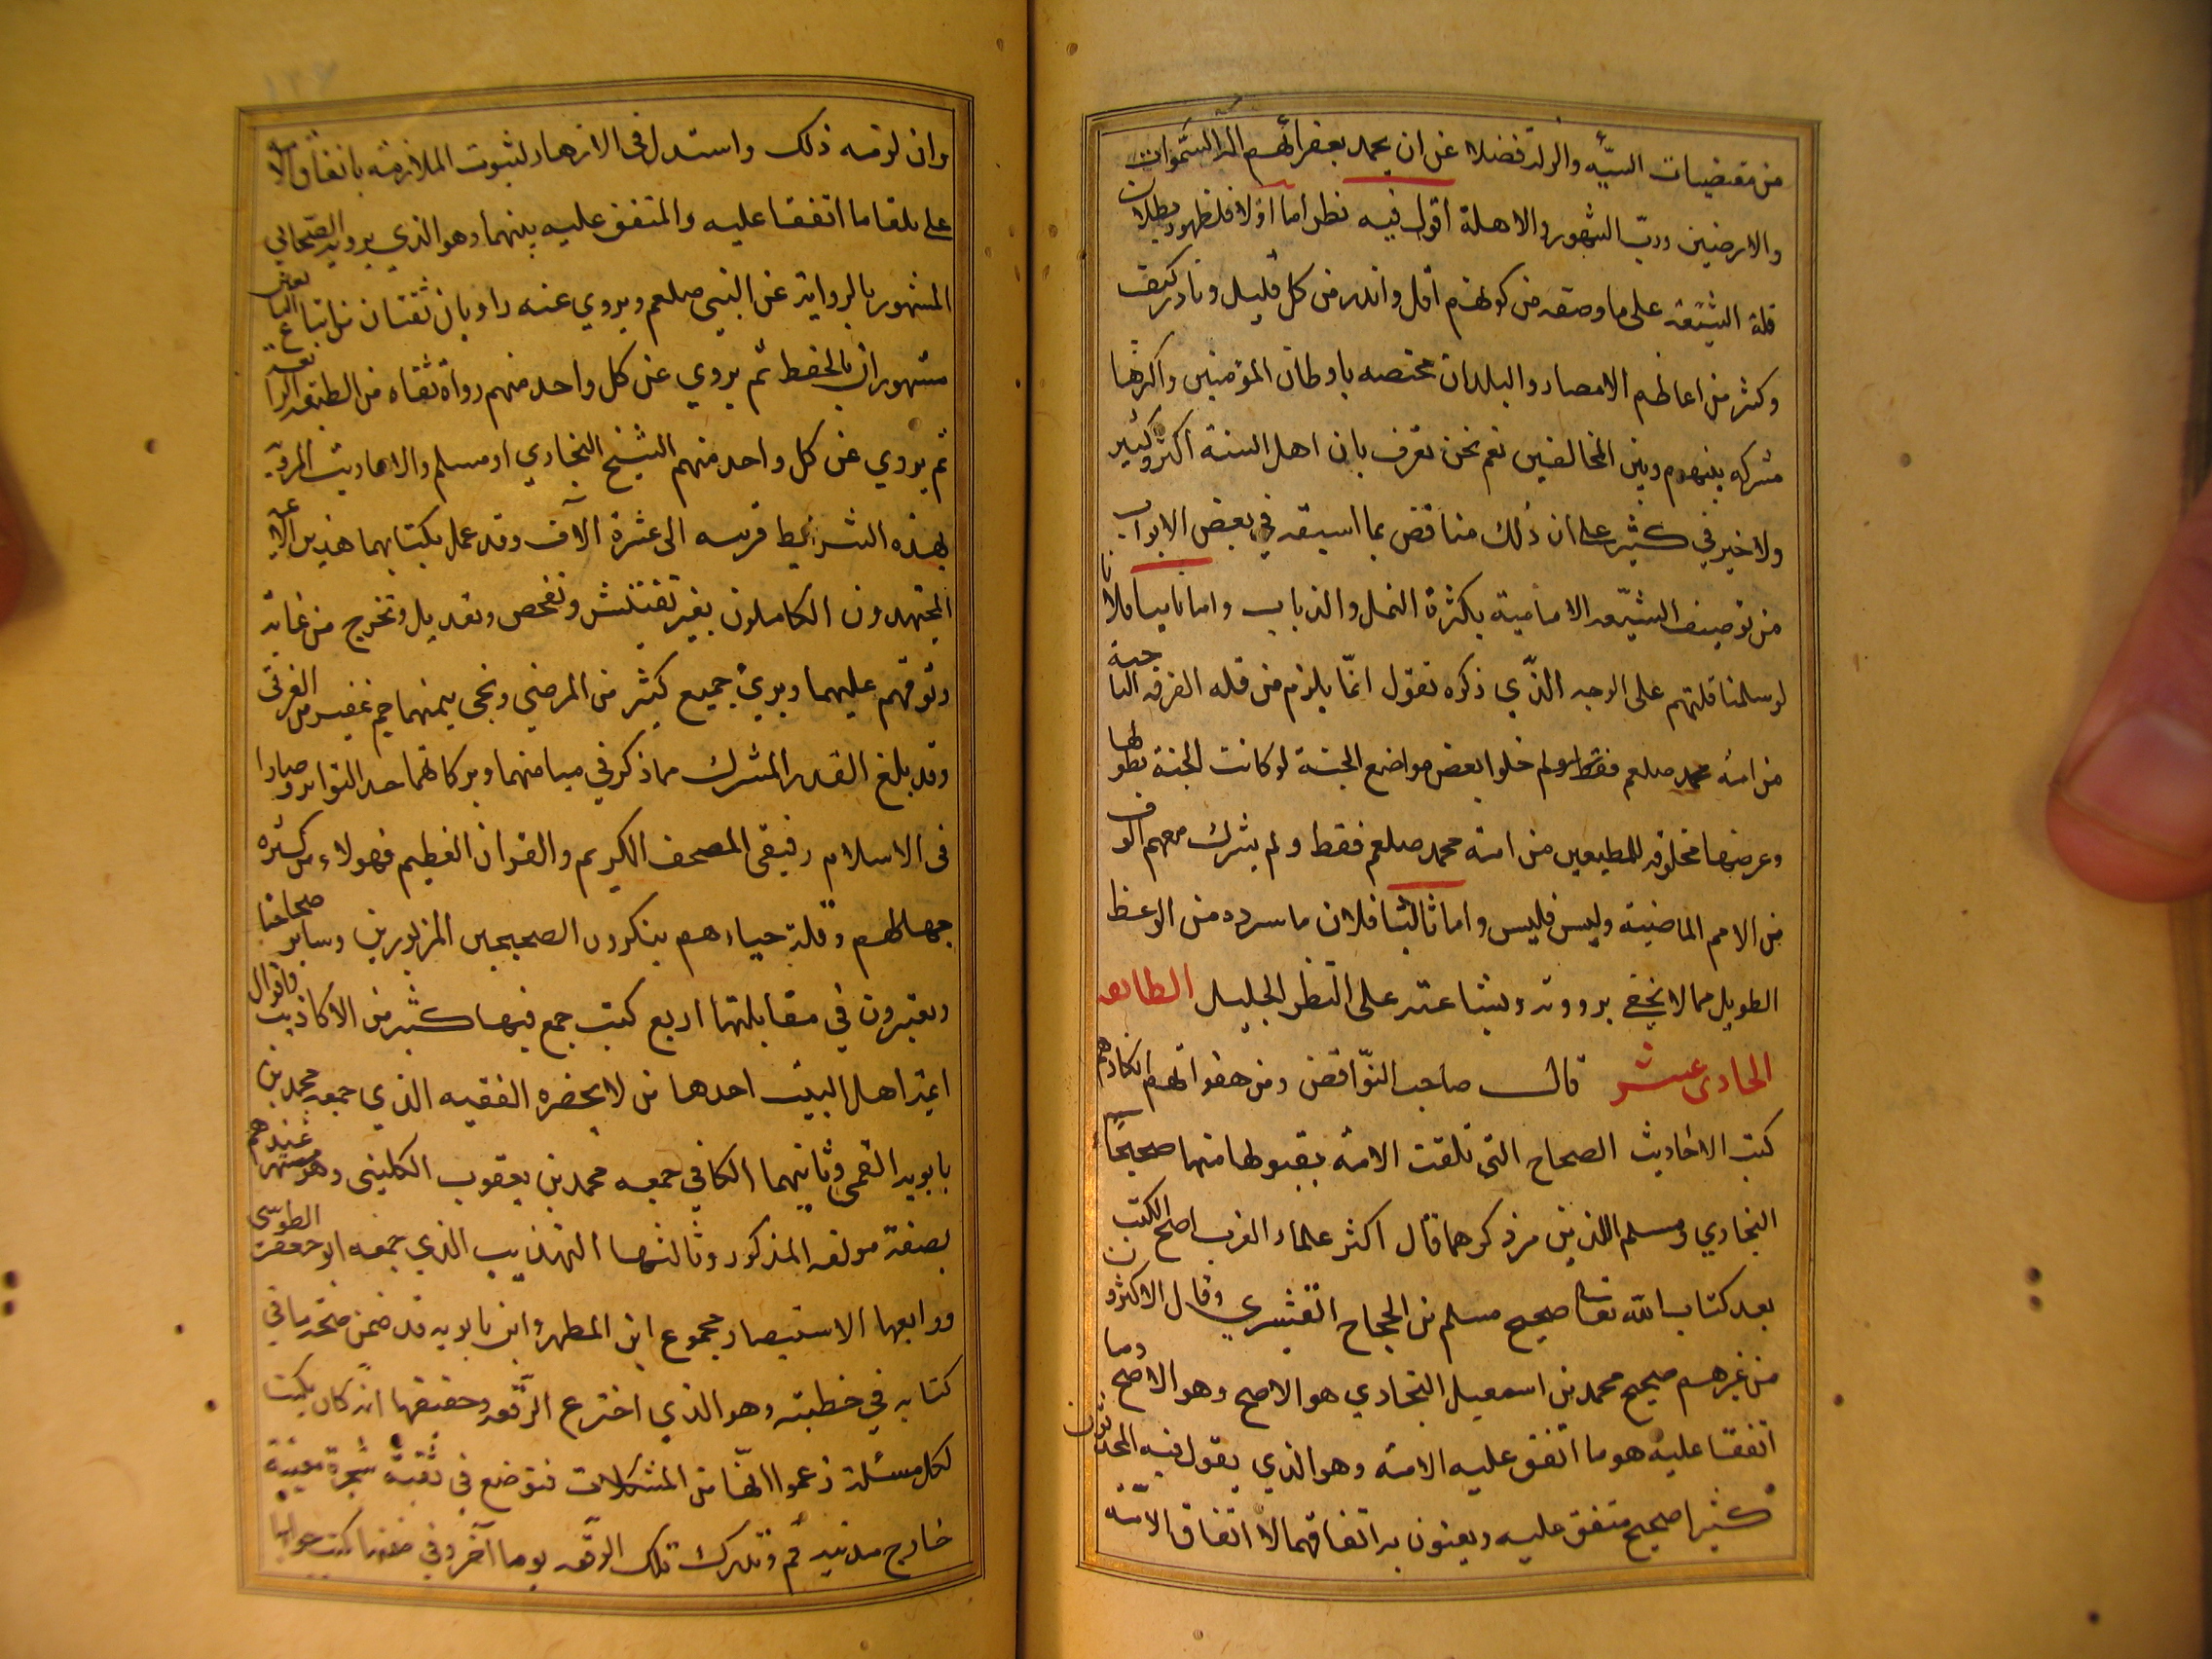 من مقتضيات السيئه والزلة فضلا عن ان يحمد بعفرانهم اله السموات
والارضين ورب الشهور والاهلة اقول فيه نظر اما اولا فلظهور بطلان
قلة الشيعة على ما وصفه من كونهم اقل واندر من كل قليل ونادر كيف
وكثر من اعاظم الامصار والبلدان مختصه باوطان المؤمنين واكثرها
مشتركه بينهم وبين المخالفين نعم نحن نعرف بان اهل السنة اكثر وكثير
ولا خير في كثير على ان ذلك مناقض بما اسبقه في بعض الابواب
من توصيف الشيعه الامامية بكثرة النمل والذباب واما ثانيا فلانا
لو سلمنا قلتهم على الوجه الذي ذكره نقول انما يلزم من قله الفرقه الناجية
من امة محمد صلعم فقط خلو بعض مواضع الجنة لو كانت الجنة بطولها
وعرضها مخلوقه للمطيعين من امة محمد صلعم فقط ولم يشرك معهم الوف
من الامم الماضية وليس فليس واما ثالثا فلان ما سرده من الوعظ
الطويل مما لا يخفى برودته وبشاعته على النظر الجليل الطائفه
الحادى عشر قال صاحب النواقض ومن هفواتهم انكارهم
كتب الاحاديث الصحاح التى تلقت الامة بقبولها منها صحيحا
البخاري ومسلم اللذين مر ذكرهما قال اكثر علماء الغرب اصح الكتب
بعد كتاب الله تعالى صحيح مسلم بن الحجاج القشيري وقال الاكثرون
من غيرهم صحيح محمد بن اسمعيل البخاري هو الاصح وهو الاصح وما
اتفقا عليه هو ما اتفق عليه الامة وهو الذي يقول فيه المحدثون
كثيرا صحيح متفق عليه ويعنون به اتفاقهما لا اتفاق الامة
وان لزمه ذلك واستدل فى الازهار لثبوت الملازمة باتفاق الامة
على تلقا ما اتفقا عليه والمتفق عليه بينهما وهو الذي يرويه الصحابي
المشهور بالرواية عن النبي صلعم ويروي عنه راويان ثقتان من اتباع
مشهوران بالحفظ ثم يروي عن كل واحد منهم رواة ثقاه من الطبقه الرابعه
ثم يروي عن كل واحد منهم الشيخ البخاري او مسلم والاحاديث المروية
بهذه الشرائط قريبه الى عشرة الاف وقد عمل بكتابهما هذين الائمه
المجتهدون الكاملون بغير تفتيش وتفحص وتعديل وتخرج من غاية
وثوقهم عليهما وبرئ جميع كثير من المرضي ونجى بيمنهما جم غفير من الغرقى
وقد بلغ القدر المشترك مما ذكر في ميامنهما وبركاتهما حد التواتر وصارا
فى الاسلام رفيقى المصحف الكريم والقران العظيم فهولاء من كثره
جهالتهم وقلة حياءهم ينكرون الصحيحين المزبورين وساير صحاحنا
ويعتبرون في مقابلتها اربع كتب جمع فيها كثير من الاكاذيب واقوال
ائمة اهل البيت احدها من لا يحضره الفقيه الذي جمعه محمد بن
بابويه القمى وثانيهما الكافي جمعه محمد بن يعقوب الكلينى وهو مشتهر عندهم
بصفة مولفه المذكور وثالثها التهذيب الذي جمعه ابو جعفر الطوسى
ورابعها الاستبصار مجموع ابن المطهر وابن بابويه قد ضمن صحة ما في
كتابه في خطبته وهو الذي اخترع الرقعه وحقيقتها انه كان يكتب
لكل مسئلة زعموا انها من المشكلات فتوضع فى ثقبة شجرة معينة
خارج مدينه قم وتترك تلك الرقعه يوما آخر وفي كتب جوابها